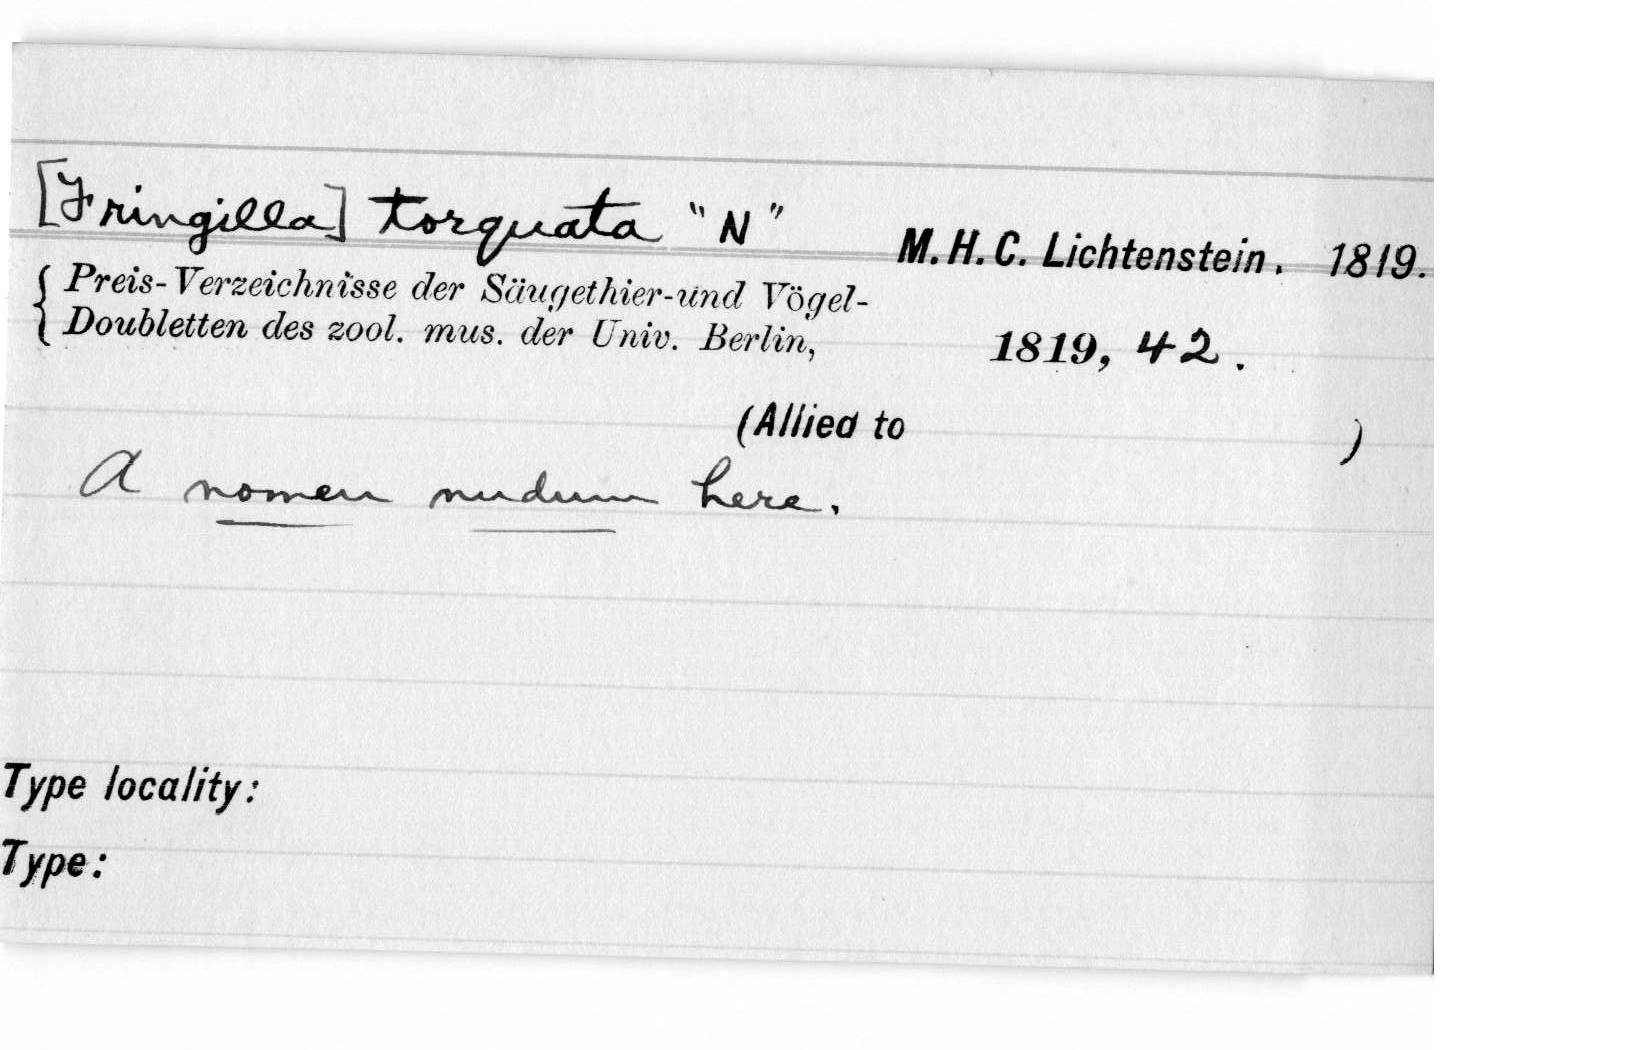 [Fringilla] torquata "N" M. H. C. Lichtenstein. 1819.
Preis-Verzeichnisse der Säugethier-und Vögel-
Doubletten des zool. mus. der Univ. Berlin, 1819, 42.
(Allied to )
A nomen nudum here.
Type locality:
Type: